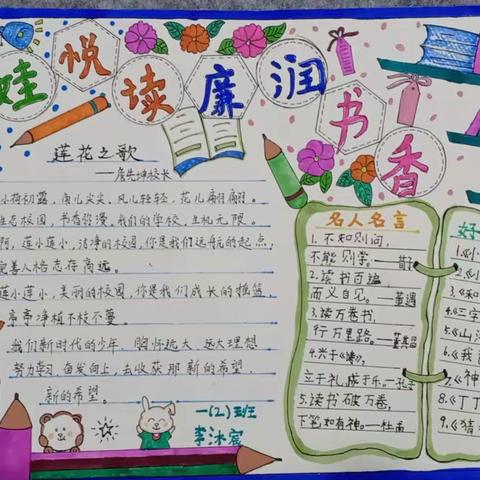 娃悦读廉润书香
莲花之歌
小荷初露，角儿尖尖，风儿轻轻，花儿翩翩。
生态校园，书香弥漫，我们的学校，生机无限。
啊，莲小莲小，洁净的校园，你是我们远航的起点，
完善人格志存高远。
莲小莲小，美丽的校园，你是我们成长的摇篮，
亭亭净植不枝不蔓。
我们新时代的少年 胸怀远大 远大理想
努力学习 奋发向上，去收获那新的希望，
新的希望。
一(2)班
李沐宸
名人名言
1.不知则问，
不能则学。——荀子
2.读书百遍，
而义自见。——董遇
3.读万卷书，
行万里路。——董其昌
4.兴于《诗》，
立于礼，成于乐。——孔子
5.读书破万卷，
下笔如有神。——杜甫
好
1.《小
2.《小
3.《和
4.《三字
5.《山
6.《我
7.《神
8.《丁丁
9.《猜